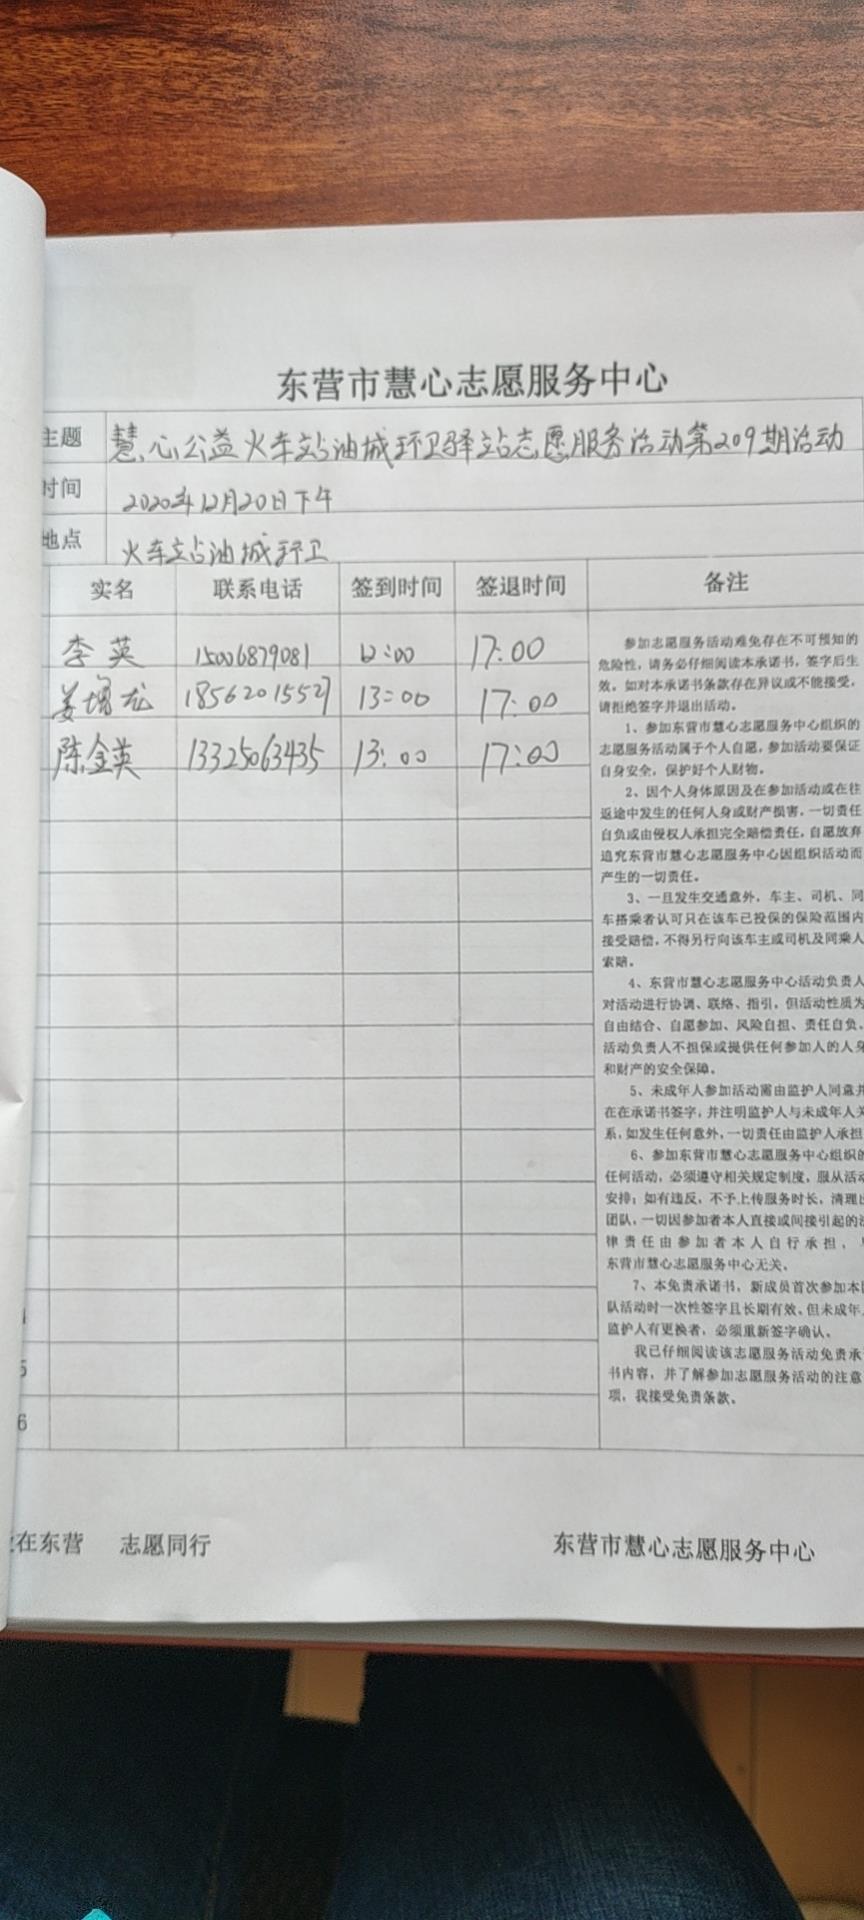 东营市慧心志愿服务中心
主题 慧心公益火车站油城环卫驿站志愿服务活动第209期活动
时间 2020年12月20日下午
地点 火车站油城环卫
实名 联系电话 签到时间 签退时间 备注
李英 15006879081 12:00 17:00
姜增龙 18562015527 13:00 17:00
陈金英 13325063435 13:00 17:00
参加志愿服务活动难免存在不可预知的
危险性，请务必仔细阅读本承诺书，签字后生
效。如对本承诺书条款存在异议或不能接受，
请拒绝签字并退出活动。
1、参加东营市慧心志愿服务中心组织的
志愿服务活动属于个人自愿，参加活动要保证
自身安全，保护好个人财物。
2、因个人身体原因及在参加活动或在往
返途中发生的任何人身或财产损害，一切责任
自负或由侵权人承担完全赔偿责任，自愿放弃
追究东营市慧心志愿服务中心因组织活动而
产生的一切责任。
3、一旦发生交通意外，车主、司机、同
车搭乘者认可只在该车已投保的保险范围内
接受赔偿，不得另行向该车主或司机及同乘人
索赔。
4、东营市慧心志愿服务中心活动负责人
对活动进行协调、联络、指引，但活动性质为
自由结合、自愿参加、风险自担、责任自负，
活动负责人不担保或提供任何参加人的人身
和财产的安全保障。
5、未成年人参加活动需由监护人同意并
在在承诺书签字，并注明监护人与未成年人关
系，如发生任何意外，一切责任由监护人承担
6、参加东营市慧心志愿服务中心组织的
任何活动，必须遵守相关规定制度，服从活动
安排；如有违反，不予上传服务时长，清理出
团队，一切因参加者本人直接或间接引起的法
律责任由参加者本人自行承担，
东营市慧心志愿服务中心无关。
7、本免责承诺书，新成员首次参加本团
队活动时一次性签字且长期有效。但未成年
监护人有更换者，必须重新签字确认。
我已仔细阅读该志愿服务活动免责承
书内容，并了解参加志愿服务活动的注意
项，我接受免责条款。
5
6
在东营 志愿同行 东营市慧心志愿服务中心